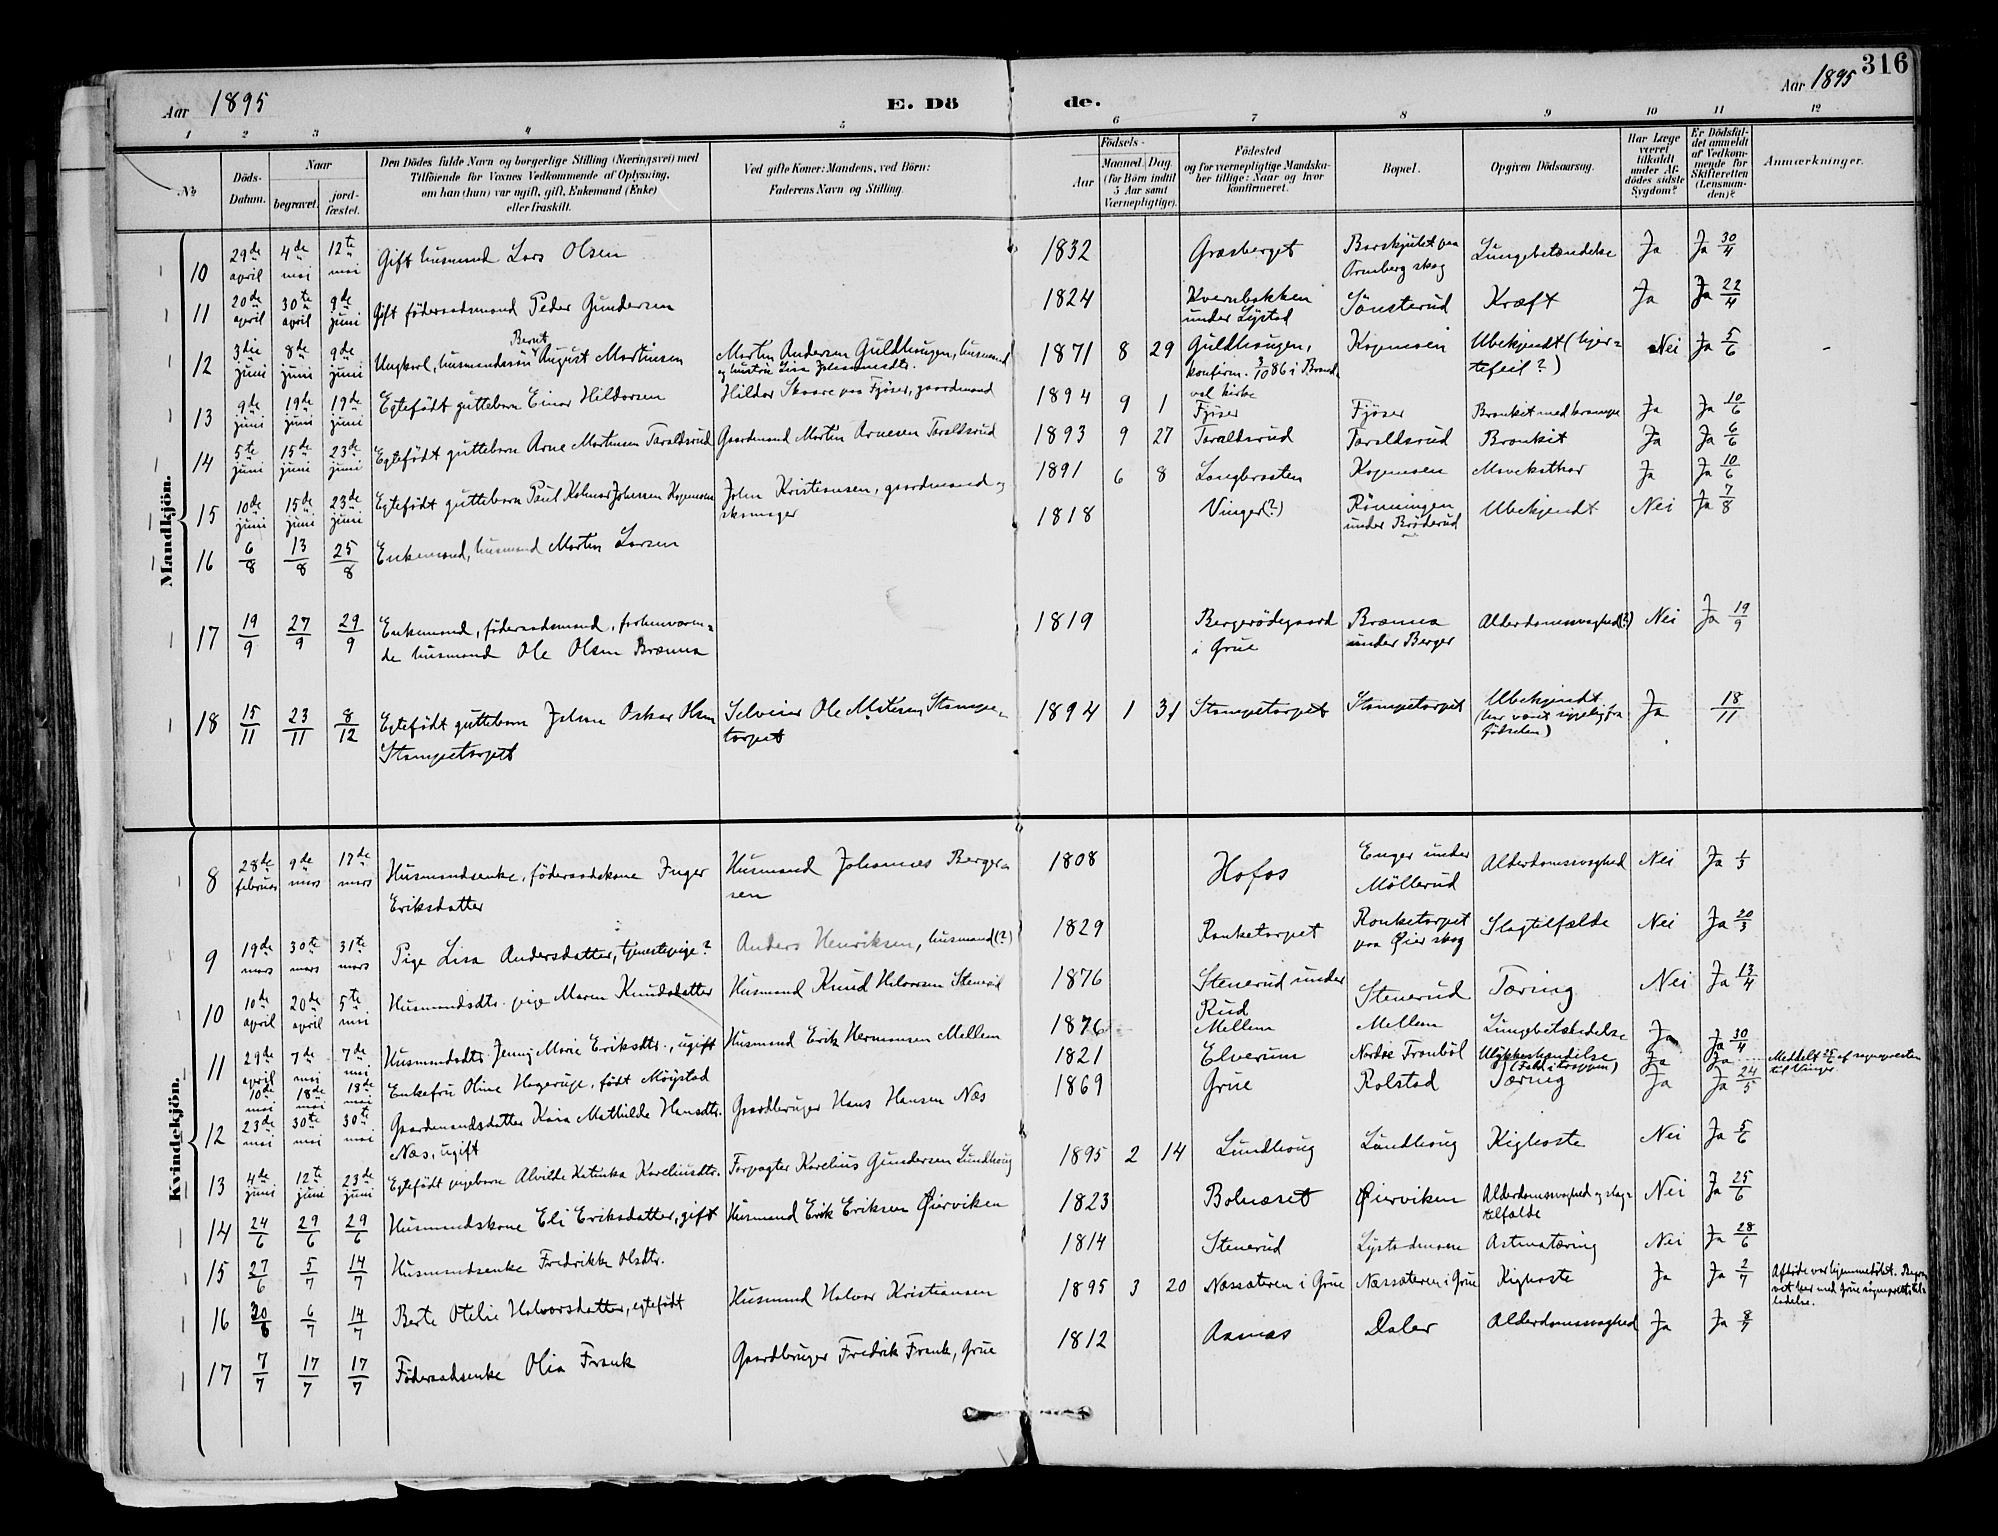 316
Aar 1895
E. Döde.
Aar 1895
1 2 3 4 5 6 7 8 9 10 11 12
No
Döds-Datum.
Naar
begravet.
jord-fæstet.
Den Dödes fulde Navn og borgerlige Stilling (Næringsvei) med
Tilföiende for Voxnes Vedkommende af Oplysning,
om han (hun) var ugift, gift, Enkemand (Enke)
eller fraskilt.
Ved gifte Koner: Mandens, ved Börn:
Faderens Navn og Stilling.
Födsels-
Aar
Maaned. Dag.
(for Börn indtil
5 Aar samt
Værnepligtige).
Födested
og for værnepligtige Mandska-
ber tillige: Naar og hvor
konfirmeret.
Bopæl.
Opgiven Dödsaarsag.
Har Læge
været
tilkaldt
under Af-
dödes sidste
Sygdom?
Er Dödsfal-
det anmeldt
af Vedkom-
mende for
Skifteretten
(Lensman-
den)?
Anmærkninger.
Mandkjön.
10 29de april 4de mai 12te mai Gift husmand Lars Olsen 1832 Græsberget Barskjulet paa Arnberg skog Lungebetændelse Ja Ja 30/4
11 20de april 30te april 9de juni Gift föderaadsmand Peder Gundersen 1824 Kvernbakken under Lystad Sönsterud Kræft Ja Ja 22/4
12 3die juni 8de juni 9de juni Ungkarl, husmandssön Bernt August Martinsen Martin Andersen Guldhaugen, husmand og hustru Lisa Johannesdtr. 1871 8 29 Guldhaugen, konfirm. 3/10 86 i Brandval kirke Kopmoen Ubekjendt (hjertefeil?) Nei Ja 5/6
13 9de juni 19de juni 19de juni Egtefödt guttebarn Einar Hildorsen Hildor Skaare paa Fjöser, gaardmand 1894 9 1 Fjöser Fjöser Bronkit med krampe Ja Ja 10/6
14 5te juni 15de juni 23de juni Egtefödt guttebarn Arne Martinsen Taraldsrud Gaardmand Martin Arnesen Taraldsrud 1893 9 27 Taraldsrud Taraldsrud Bronkit Ja Ja 6/6
15 10de juni 15de juni 23de juni Egtefödt guttebarn Paul Kolmar Johnsen Kopmoen John Kristiansen, gaardmand og skomager 1891 6 8 Langbraaten Kopmoen Mavekathar Ja Ja 10/6
16 6/8 13/8 25/8 Enkemand, husmand Martin Larsen 1818 Vinger (?) Rönningen under Bröderud Ubekjendt Nei Ja 7/8
17 19/9 27/9 29/9 Enkemand, föderaadsmand, forhenværende husmand Ole Olsen Brænna 1819 Bergerödegaard i Grue Brænna under Berger Alderdomssvaghed (?) Nei Ja 19/9
18 15/11 23/11 8/12 Egtefödt guttebarn Johan Oskar Olsen Stampetorpet Selveier Ole Matisen Stampetorpet 1894 1 31 Stampetorpet Stampetorpet Ubekjendt (har været sygelig fra födselen) Ja 18/11
Kvindekjön.
8 28de februar 9de mars 17de mars Husmandsenke, föderaadskone Inger Eriksdatter Husmand Johannes Bergersen 1808 Hofos Enger under Möllerud Alderdomssvaghed Nei Ja 1/3
9 19de mars 30te mars 31te mars Pige Lisa Andersdatter, tjenestepige? Anders Henriksen, husmand (?) 1829 Ronketorpet Ronketorpet paa Öier skog Slagtilfælde Nei Ja 20/3
10 10de april 20de april 5te mai Husmandsdtr. pige Maren Knudsdatter Husmand Knud Halvorsen Stenerud 1876 Stenerud under Rud Stenerud Tæring Nei Ja 13/4
11 29de april 7de mai 7de mai Husmandsdtr. Jenny Marie Eriksdtr., ugift Husmand Erik Hermansen Mellem 1876 Mellem Mellem Lungebetændelse Ja Ja 30/4
10de mai 18de mai 18de mai Enkefru Oline Hagerupe, födt Möystad 1821 Elverum Nordre Tronböl Ulykkeshændelse (Fald i trappen) Ja Ja ... Meddelt 25/5 af sognepresten til Vinger.
12 23de mai 30te mai 30te mai Gaardmandsdatter Kaia Mathilde Hansdtr. Næs, ugift Gaardbruger Hans Hansen Næs 1869 Grue Rolstad Tæring Ja Ja 24/5
13 4de juni 12te juni 23de juni Egtefödt pigebarn Alvilde Katinka Kareliusdtr. Forpagter Karelius Gundersen Lundhoug 1895 2 14 Lundhoug Lundhoug Kighoste Nei Ja 5/6
14 24/6 29/6 29/6 Husmandskone Eli Eriksdatter, gift Husmand Erik Eriksen Öierviken 1823 Bolnæset Öierviken Alderdomssvaghed og slagtilfælde Nei Ja 25/6
15 27/6 5/7 14/7 Husmandsenke Fredrikke Olsdtr. 1814 Stenerud Lystadmoen Astmatæring Nei Ja 28/6
16 30/6 6/7 14/7 Berte Otelie Halvorsdatter, egtefödt Husmand Halvor Kristiansen 1895 3 20 Næssæteren i Grue Næssæteren i Grue Kighoste Ja Ja 2/7 Afdöde var hjemmedöbt. Begravet her med Grue sogneprests tilladelse.
17 7/7 17/7 17/7 Föderaadsenke Olia Frank Gaardbruger Fredrik Frank, Grue 1812 Aasnæs Daler Alderdomssvaghed Ja Ja 8/7